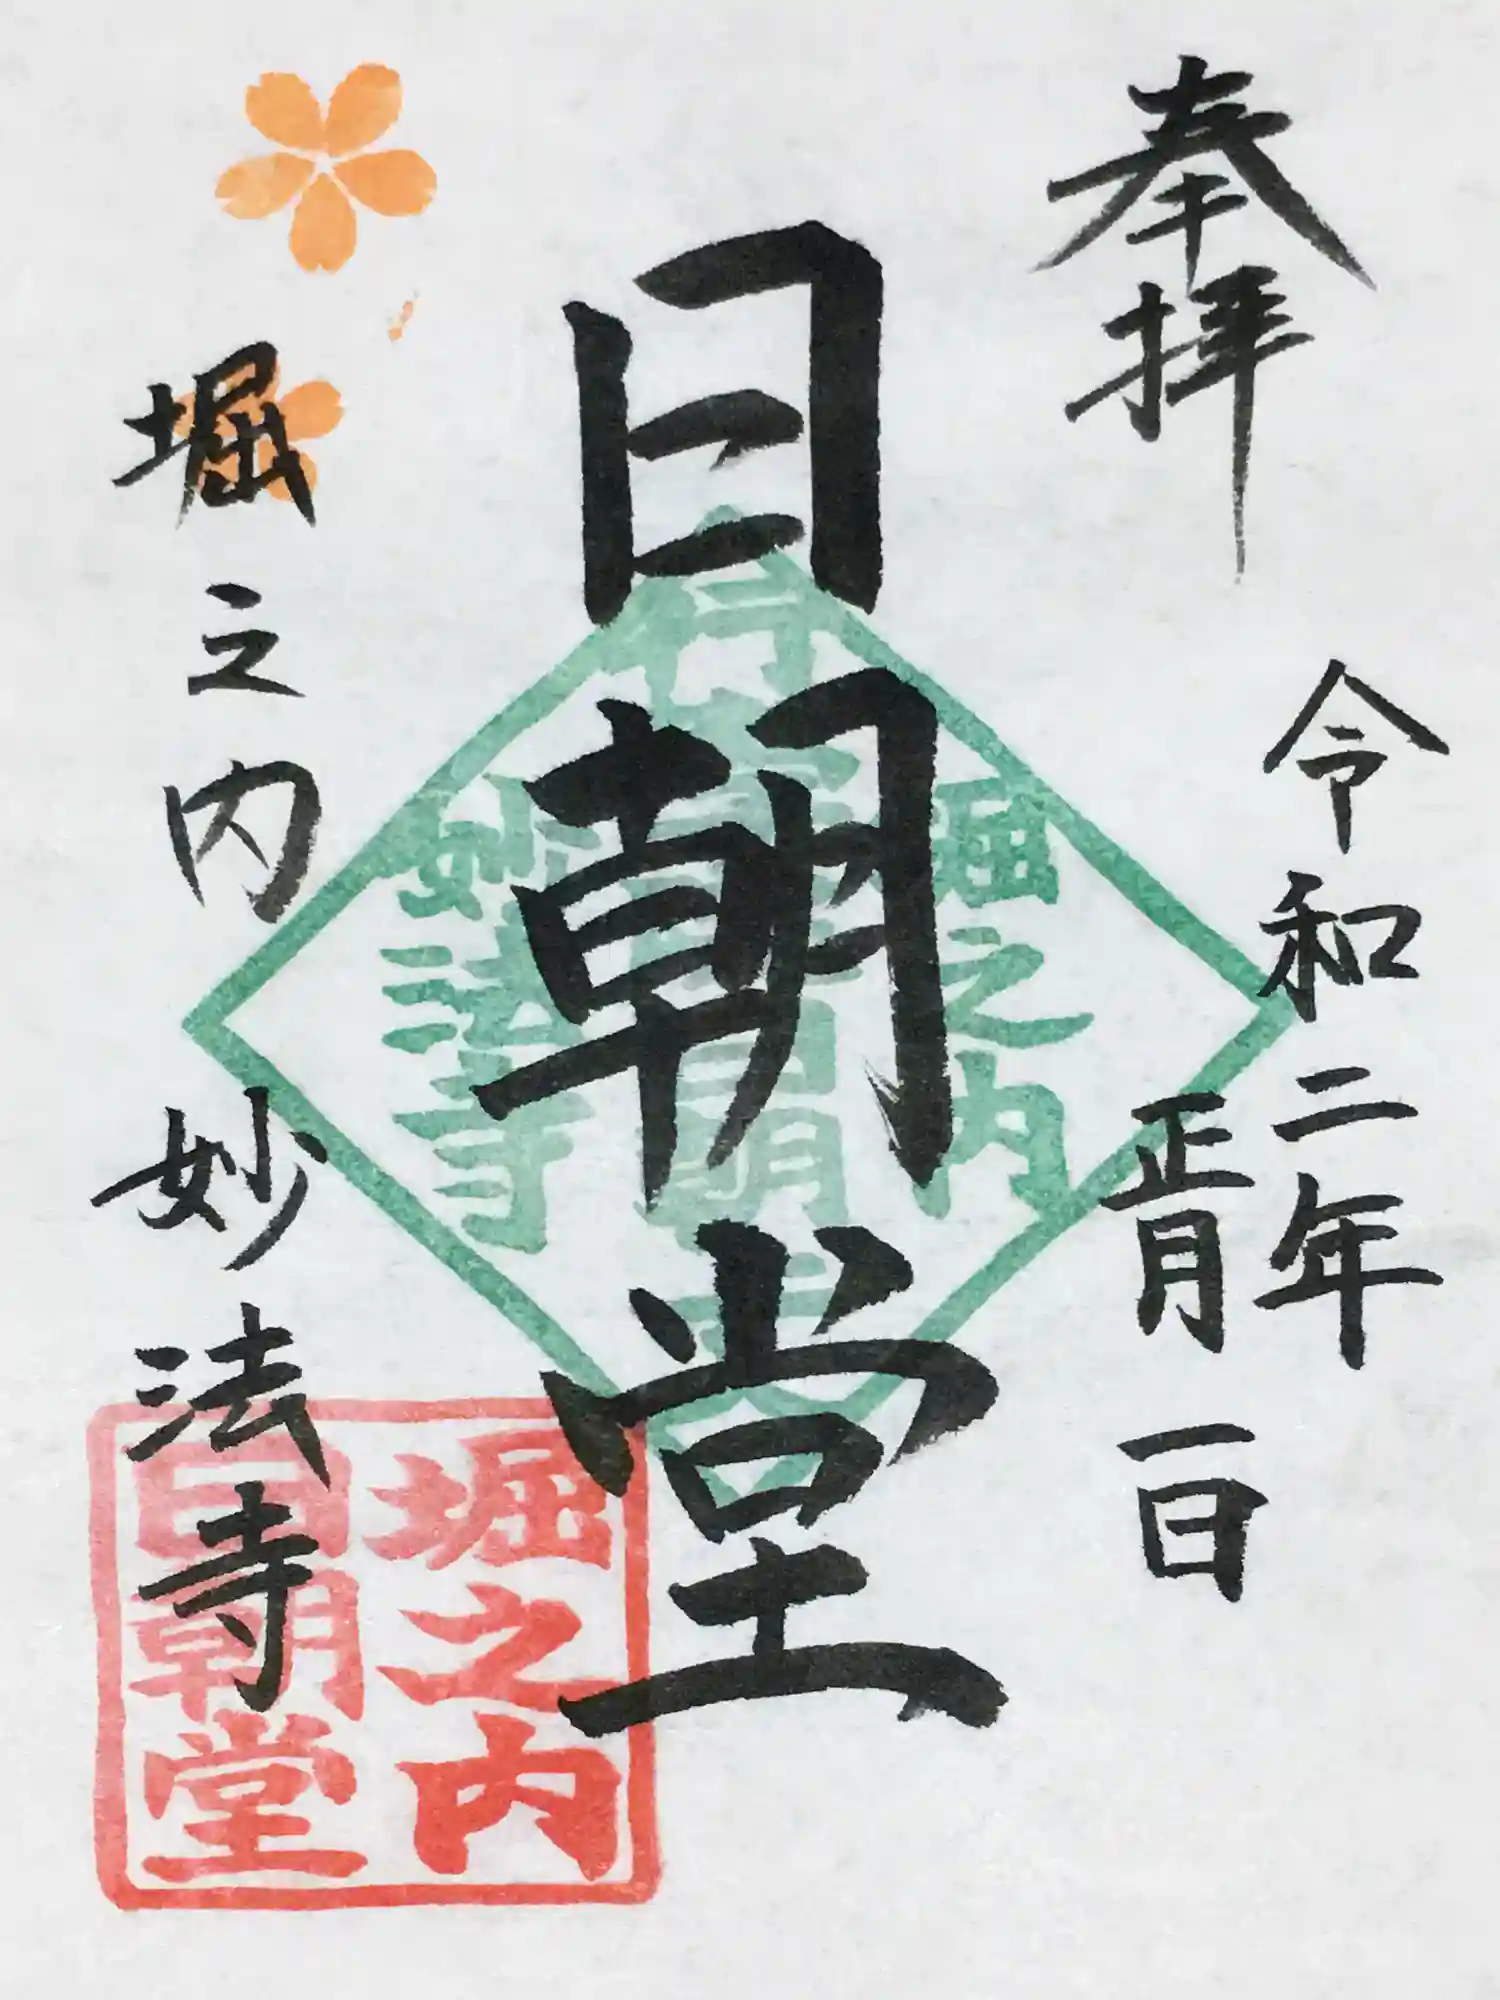 奉拝
令和二年
正月一日
日朝堂
堀之内妙法寺
堀之内
妙法寺
堀之内
日朝堂